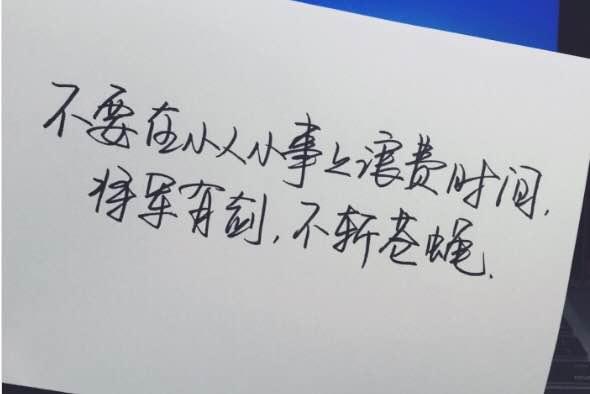 不要在小人小事上浪费时间，
将军有剑，不斩苍蝇。